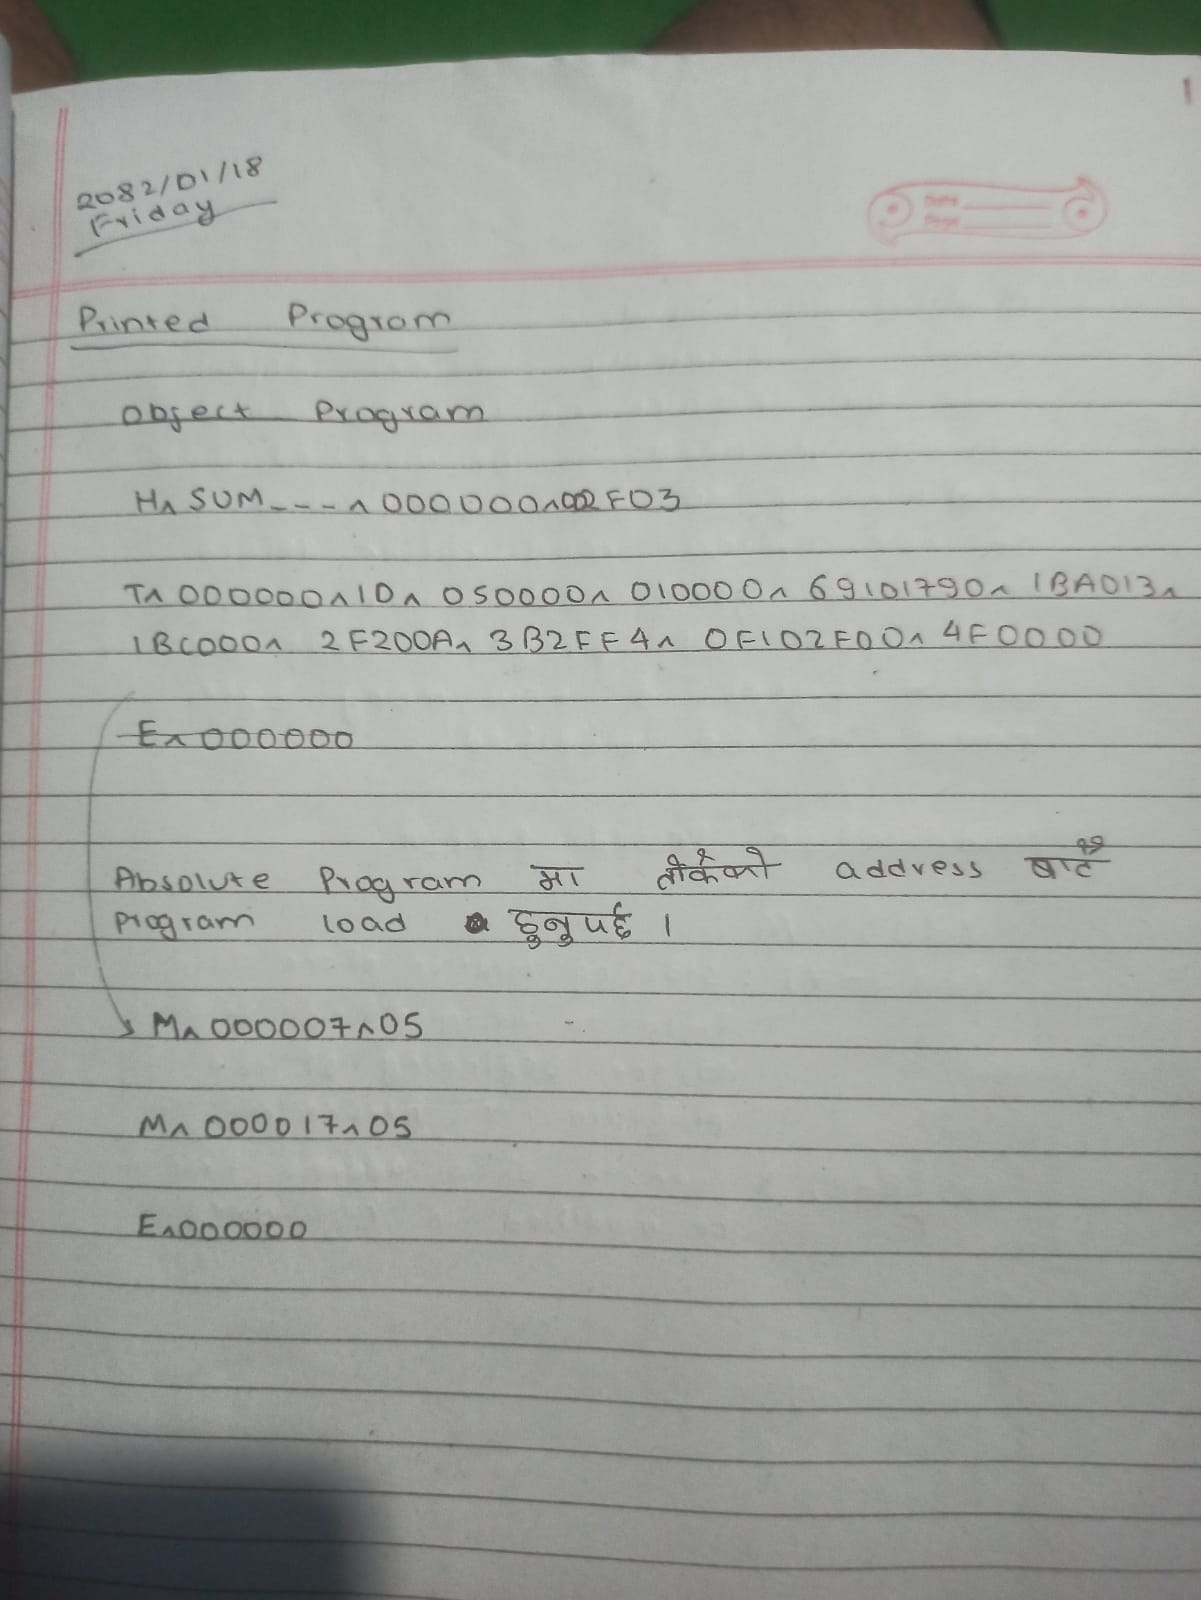 1
2082/01/18
Friday
Printed Program
Object Program
H^ SUM_ _ _ ^ 000000^002F03
T^ 000000^1D^ 050000^ 010000^ 69101790^ 1BA013^
1BC000^ 2F200A^ 3B2FF4^ 0F102F00^ 4F0000
E^ 000000
Absolute Program मा तोकेको address बाट
Program load हुनुपर्छ ।
M^ 000007^05
M^ 000017^05
E^000000